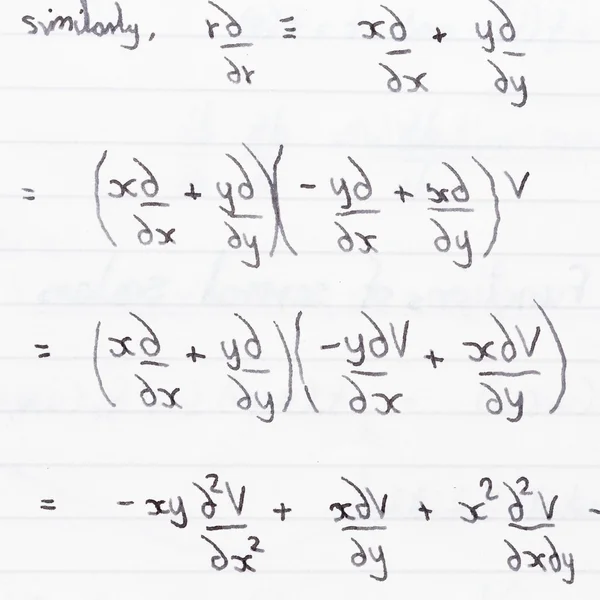 similarly, r∂/∂r ≡ x∂/∂x + y∂/∂y
= (x∂/∂x + y∂/∂y)(-y∂/∂x + x∂/∂y)V
= (x∂/∂x + y∂/∂y)(-y∂V/∂x + x∂V/∂y)
= -xy ∂²V/∂x² + x∂V/∂y + x² ∂²V/∂x∂y -